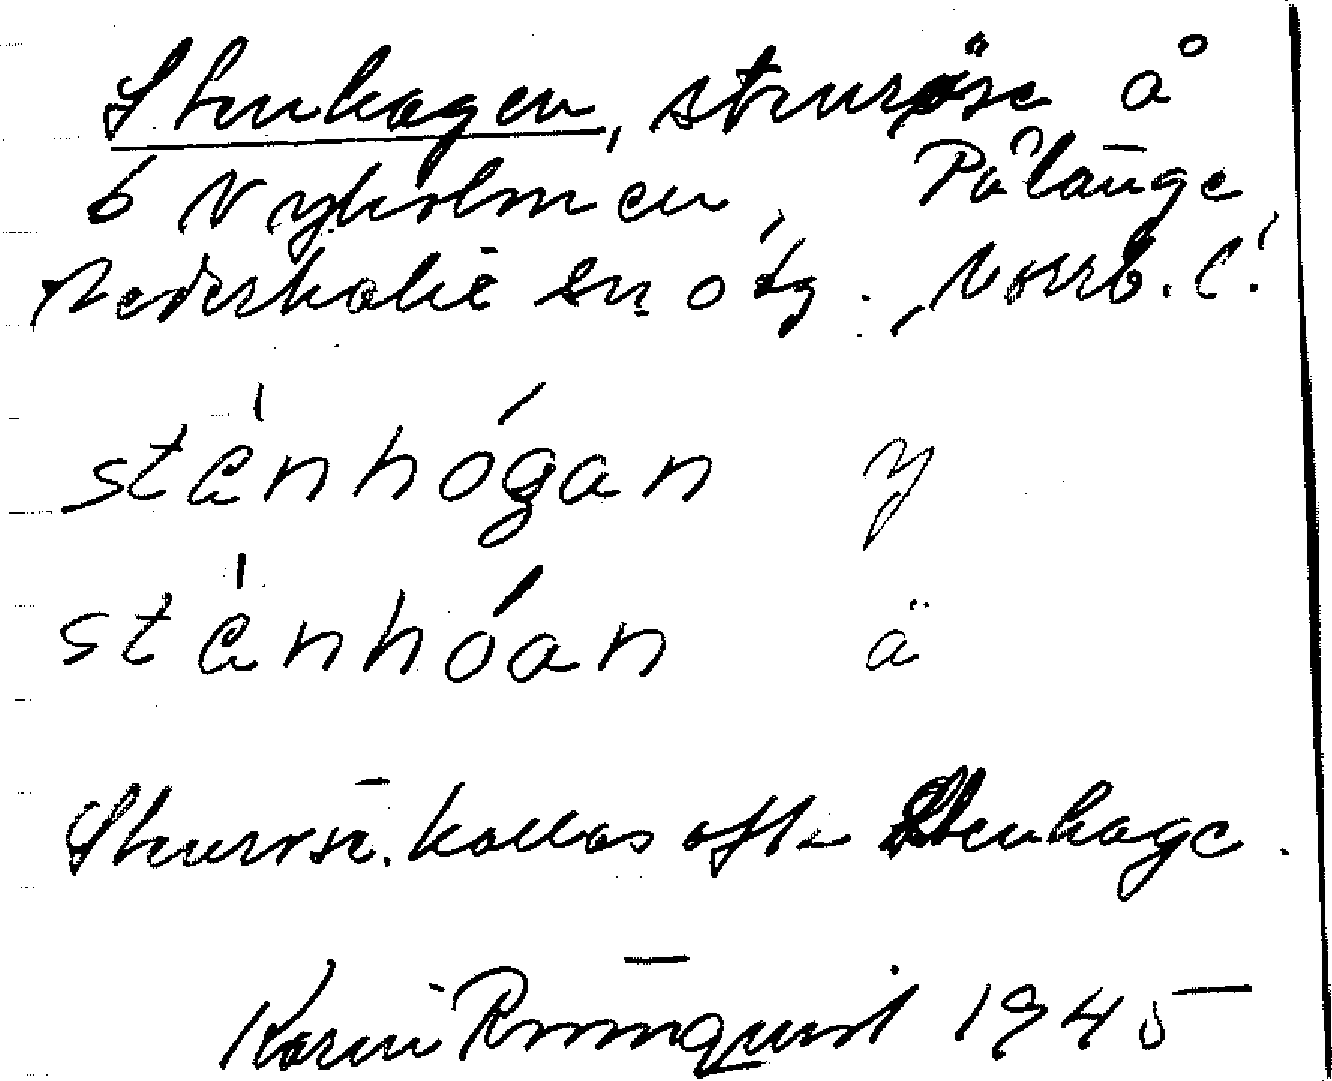 Stenhagen, stenröse å
ö Nyholmen, Pålänge
Nederkalix sn ötg. Norrb. l.
sténhógan y
sténhóan ä
Stenröse kallas ofta Stenhage.
Karin Rönnquist 1945